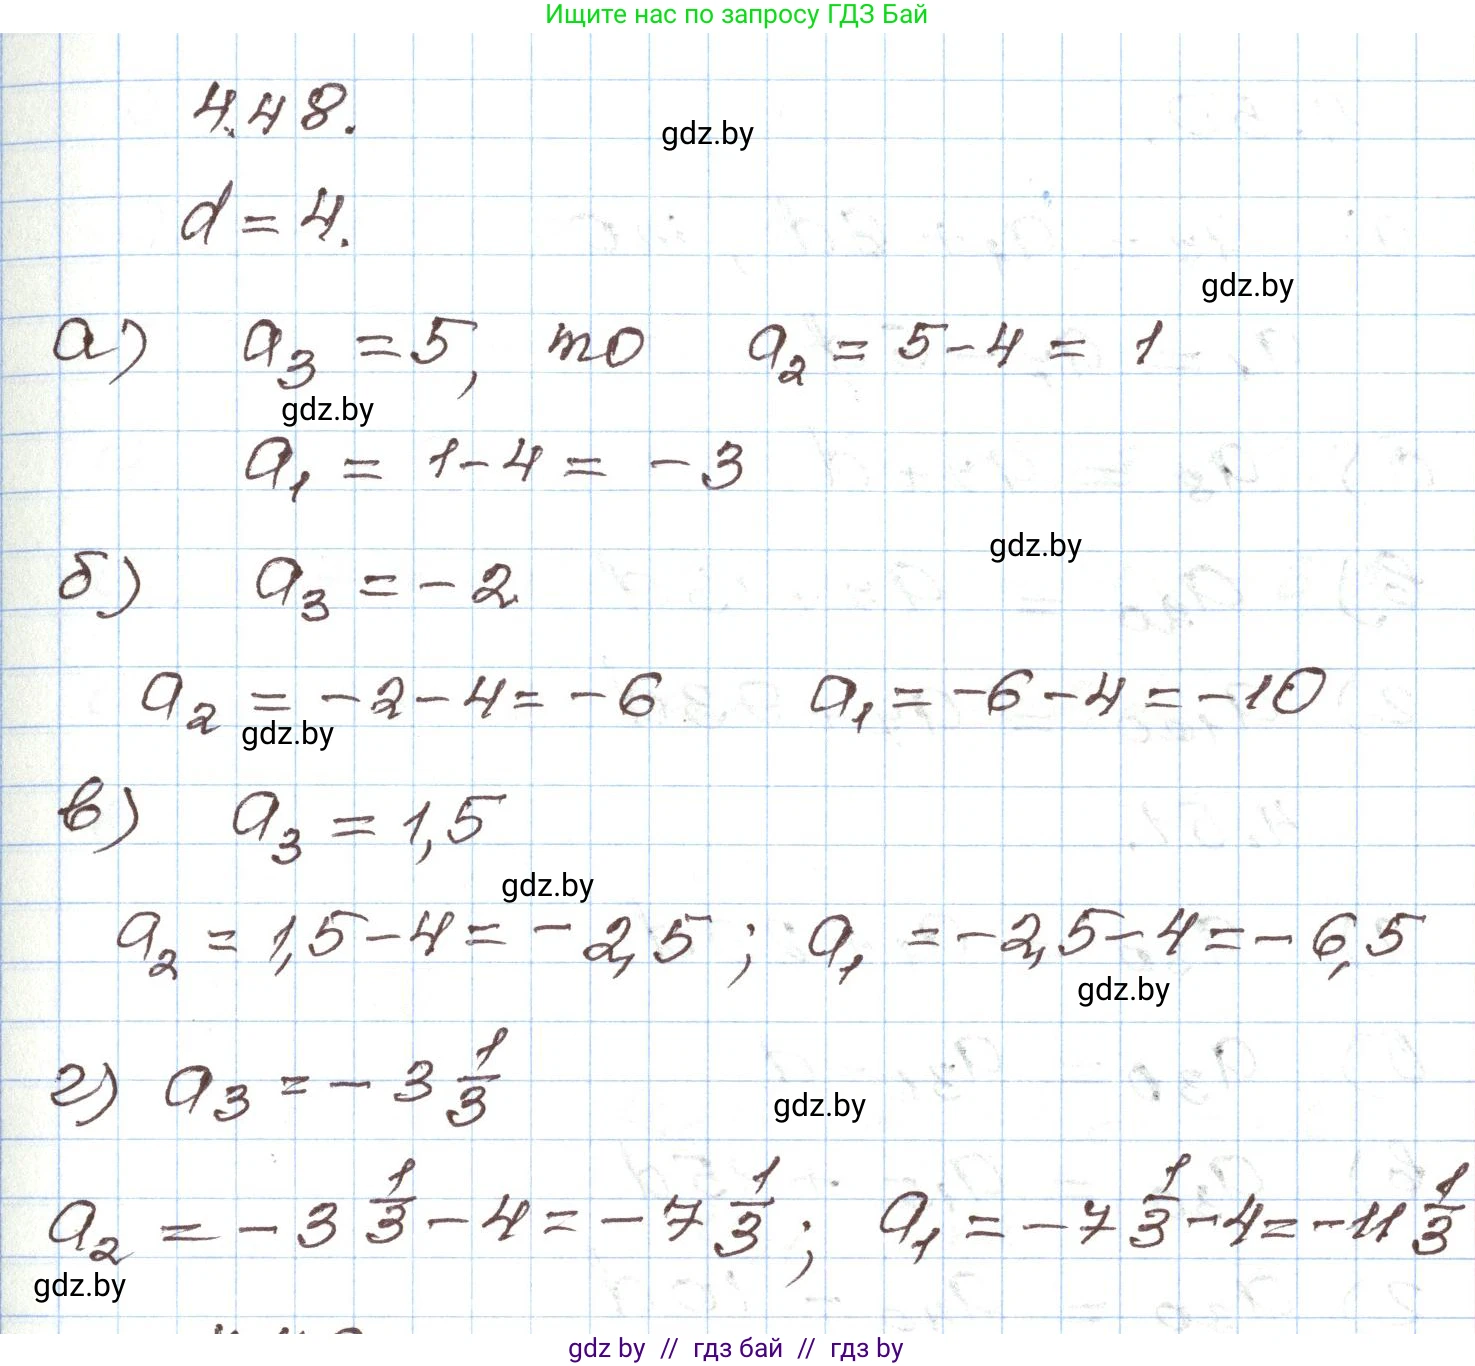 Ищите нас по запросу ГДЗ Бай
4.48.
gdz.by
d = 4.
gdz.by
а) a₃ = 5, то a₂ = 5 - 4 = 1
gdz.by
a₁ = 1 - 4 = -3
gdz.by
б) a₃ = -2
a₂ = -2 - 4 = -6 a₁ = -6 - 4 = -10
gdz.by
в) a₃ = 1,5
gdz.by
a₂ = 1,5 - 4 = -2,5 ; a₁ = -2,5 - 4 = -6,5
gdz.by
г) a₃ = -3 1/3
gdz.by
a₂ = -3 1/3 - 4 = -7 1/3 ; a₁ = -7 1/3 - 4 = -11 1/3
gdz.by
gdz by // гдз бай // гдз by